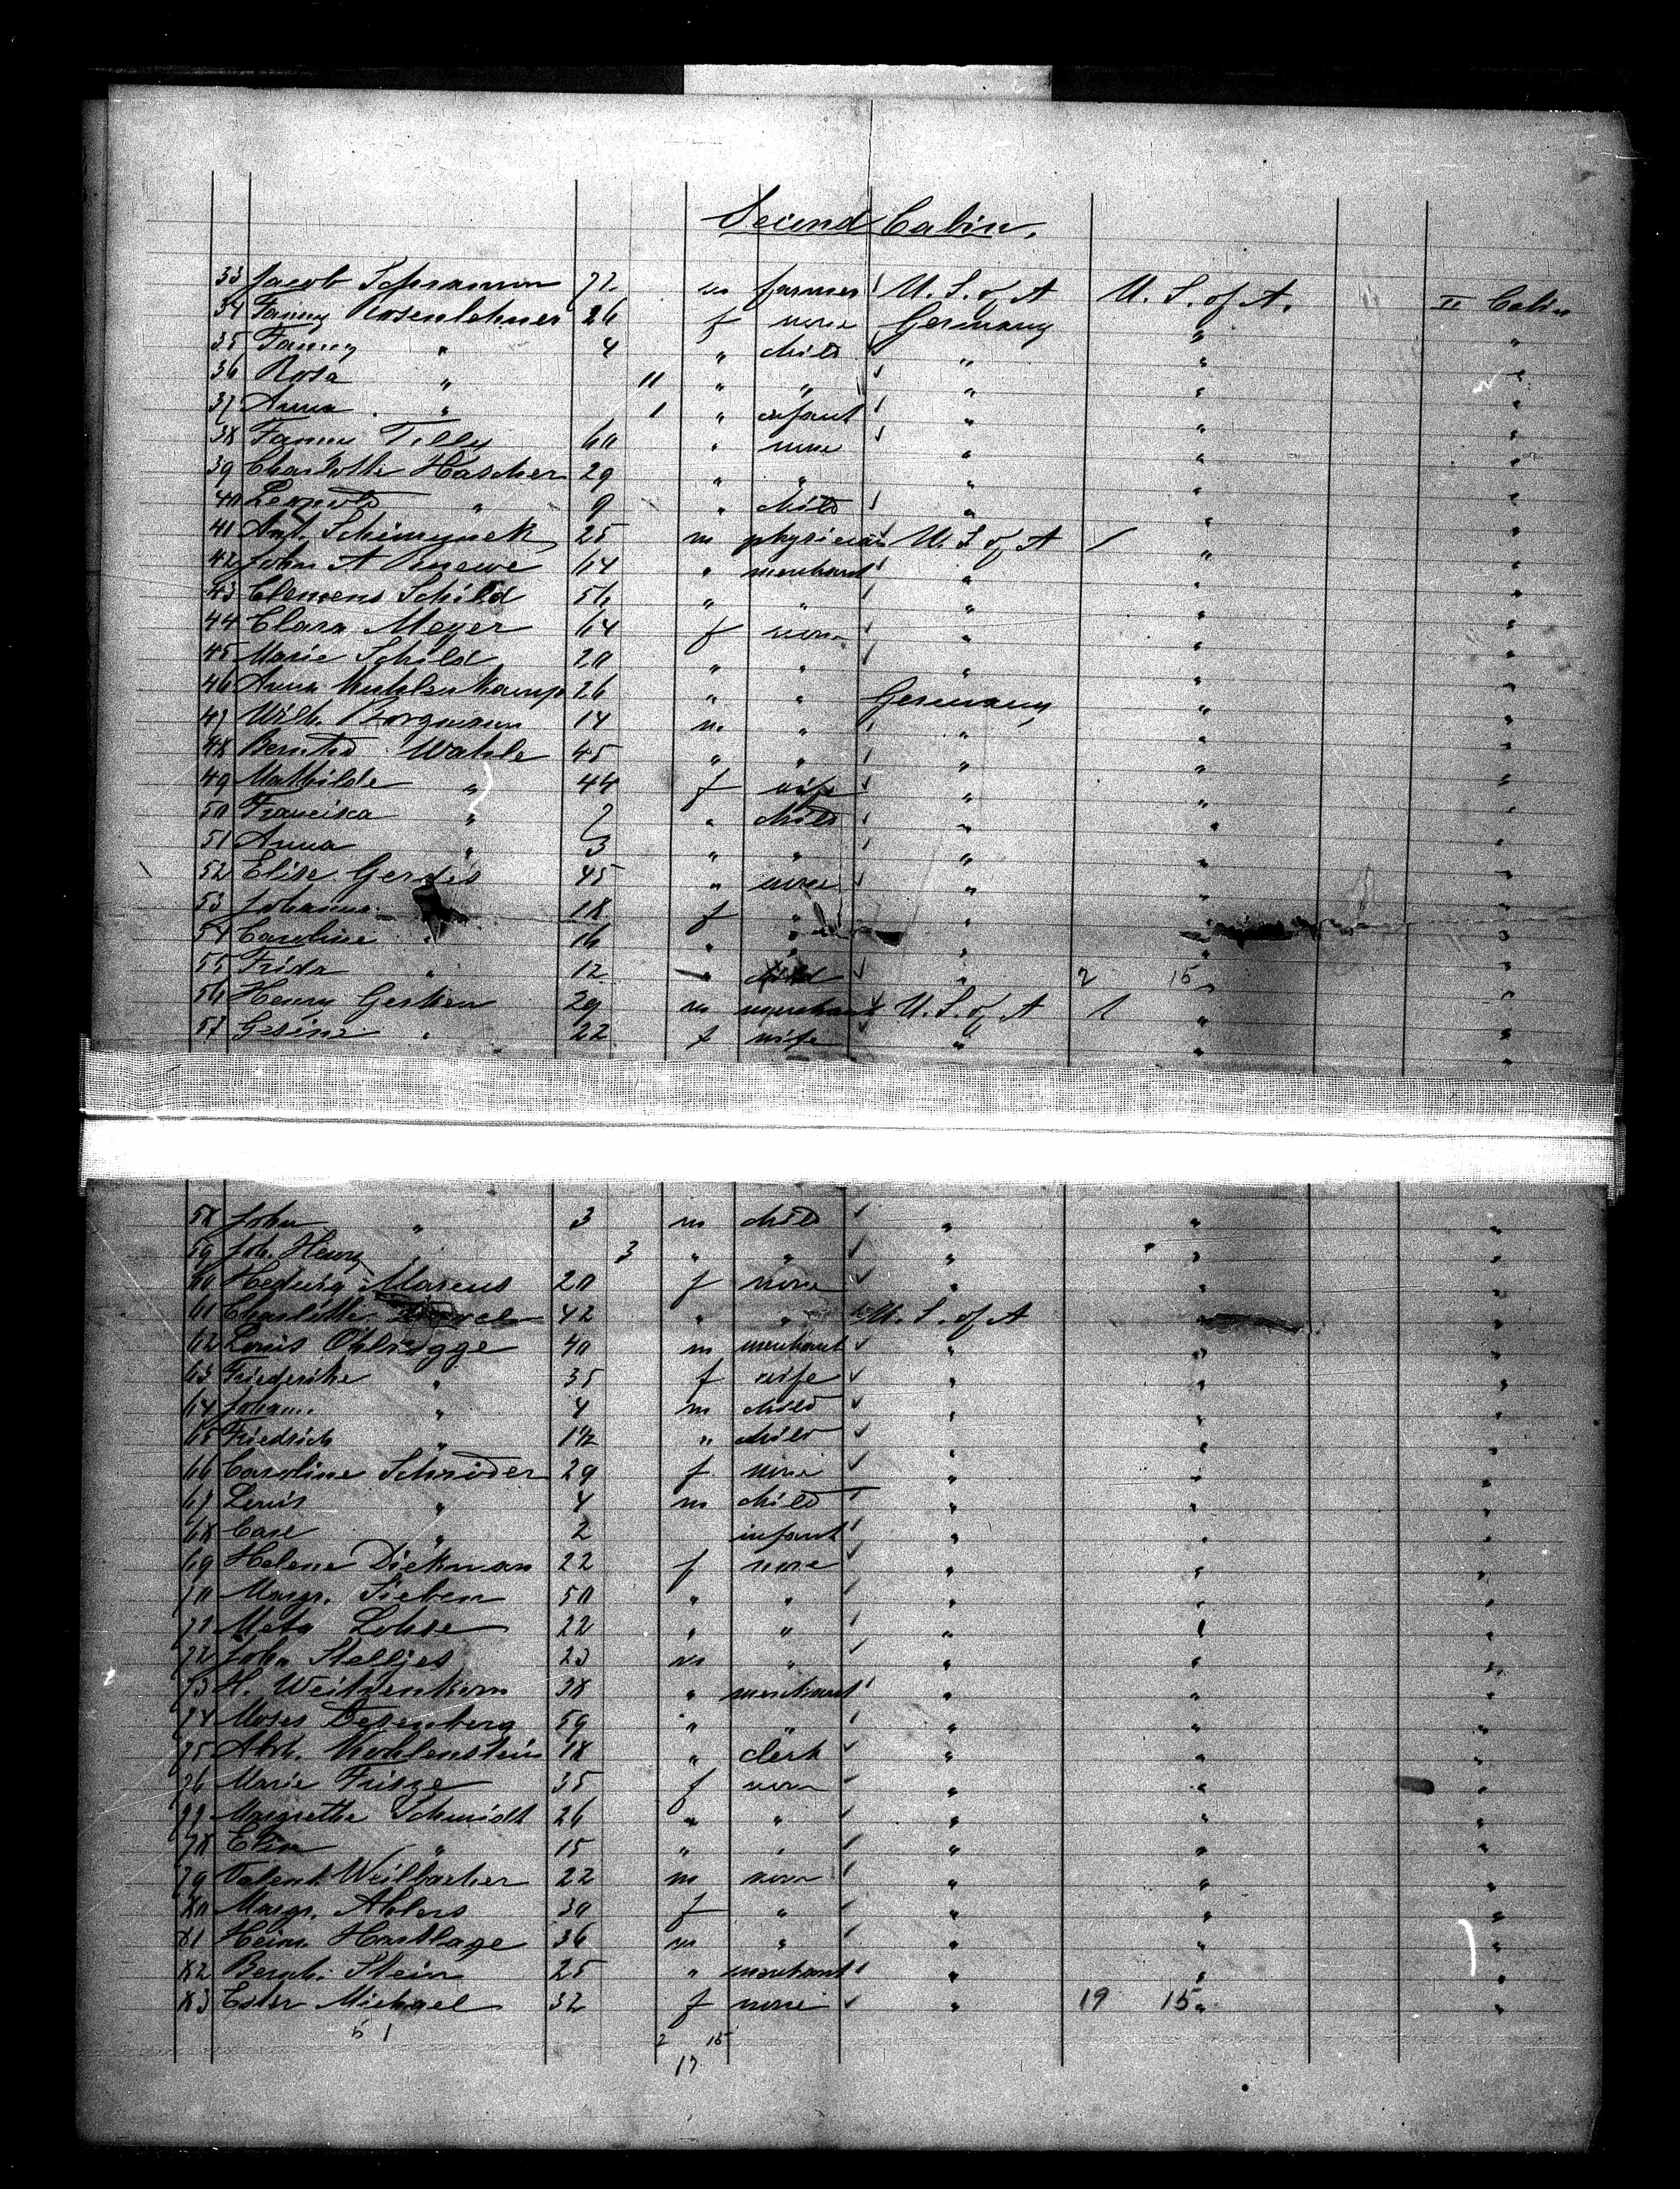 Second Cabin.
33 Jacob Schramm 72 m farmer U. S. of A U. S. of A. II Cabin
34 Fanny Rosenlehner 26 f none Germany " "
35 Fanny " 4 " child " " "
36 Rosa " 11 " " " " "
37 Anna " 1 " infant " " "
38 Fanny Tilly 60 " none " " "
39 Charlotte Hascher 29 " " " " "
40 Leopold " 9 " child " " "
41 Ant. Schimynek 25 m physician U. S. of A " "
42 John A 64 " merchant " " "
43 Clemens Schild 56 " " " " "
44 Clara Meyer 64 f none " " "
45 Marie Schild 20 " " " " "
46 Anna Muhlenkamp 26 " " Germany " "
47 Wilh. Borgmann 14 m " " " "
48 Bernhd Wahle 45 " " " " "
49 Mathilde " 44 f wife " " "
50 Francisca " 7 " child " " "
51 Anna " 3 " " " " "
52 Elise Gerdes 45 " none " " "
53 Johanne 18 f " " " "
54 Caroline " 16 " " " " "
55 Frida " 12 " child " 2 15 " "
56 Henry Gerken 29 m merchant U. S. of A 1 " "
57 Gesine " 22 f wife " " "
58 John " 3 m child " " "
59 Joh. Henry " 3 " " " " "
60 Hedwig Marcus 20 f none " " "
61 Charlotte 42 " " U. S. of A " "
62 Louis Ohlrogge 40 m merchant " " "
63 Friederike " 35 f wife " " "
64 Johann " 4 m child " " "
65 Friedrich " 1½ " child " " "
66 Caroline Schröder 29 f none " " "
67 Louis " 4 m child " " "
68 Carl " 2 infant " " "
69 Helene Diekman 22 f none " " "
70 Margr. Sieben 50 " " " " "
71 Meta Lohse 22 " " " " "
72 John Stelljes 23 m " " " "
73 H. Weitzenkorn 38 " merchant " " "
74 Moses Desenberg 59 " " " " "
75 Abh. Kohlenstein 18 " clerk " " "
76 Marie Friske 35 f none " " "
77 Margrethe Schmidt 26 " " " " "
78 " 15 " " " " "
79 Valent. Weilbacher 22 m none " " "
80 Margr. Ahlers 30 f " " " "
81 Heinr. Hartlage 36 m " " " "
82 Bernh. Stein 25 " merchant " " "
83 Ester Michael 32 f none " 19 15 " "
51 2 15
17